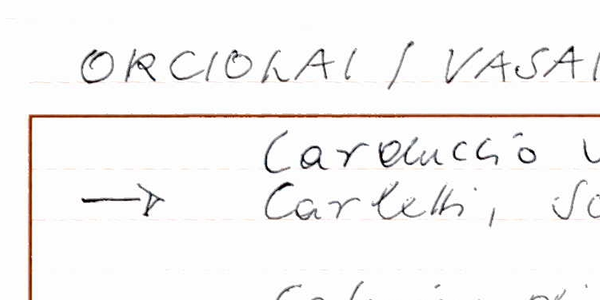 ORCIOLAI / VASAI
Carduccio
→ Carletti, So